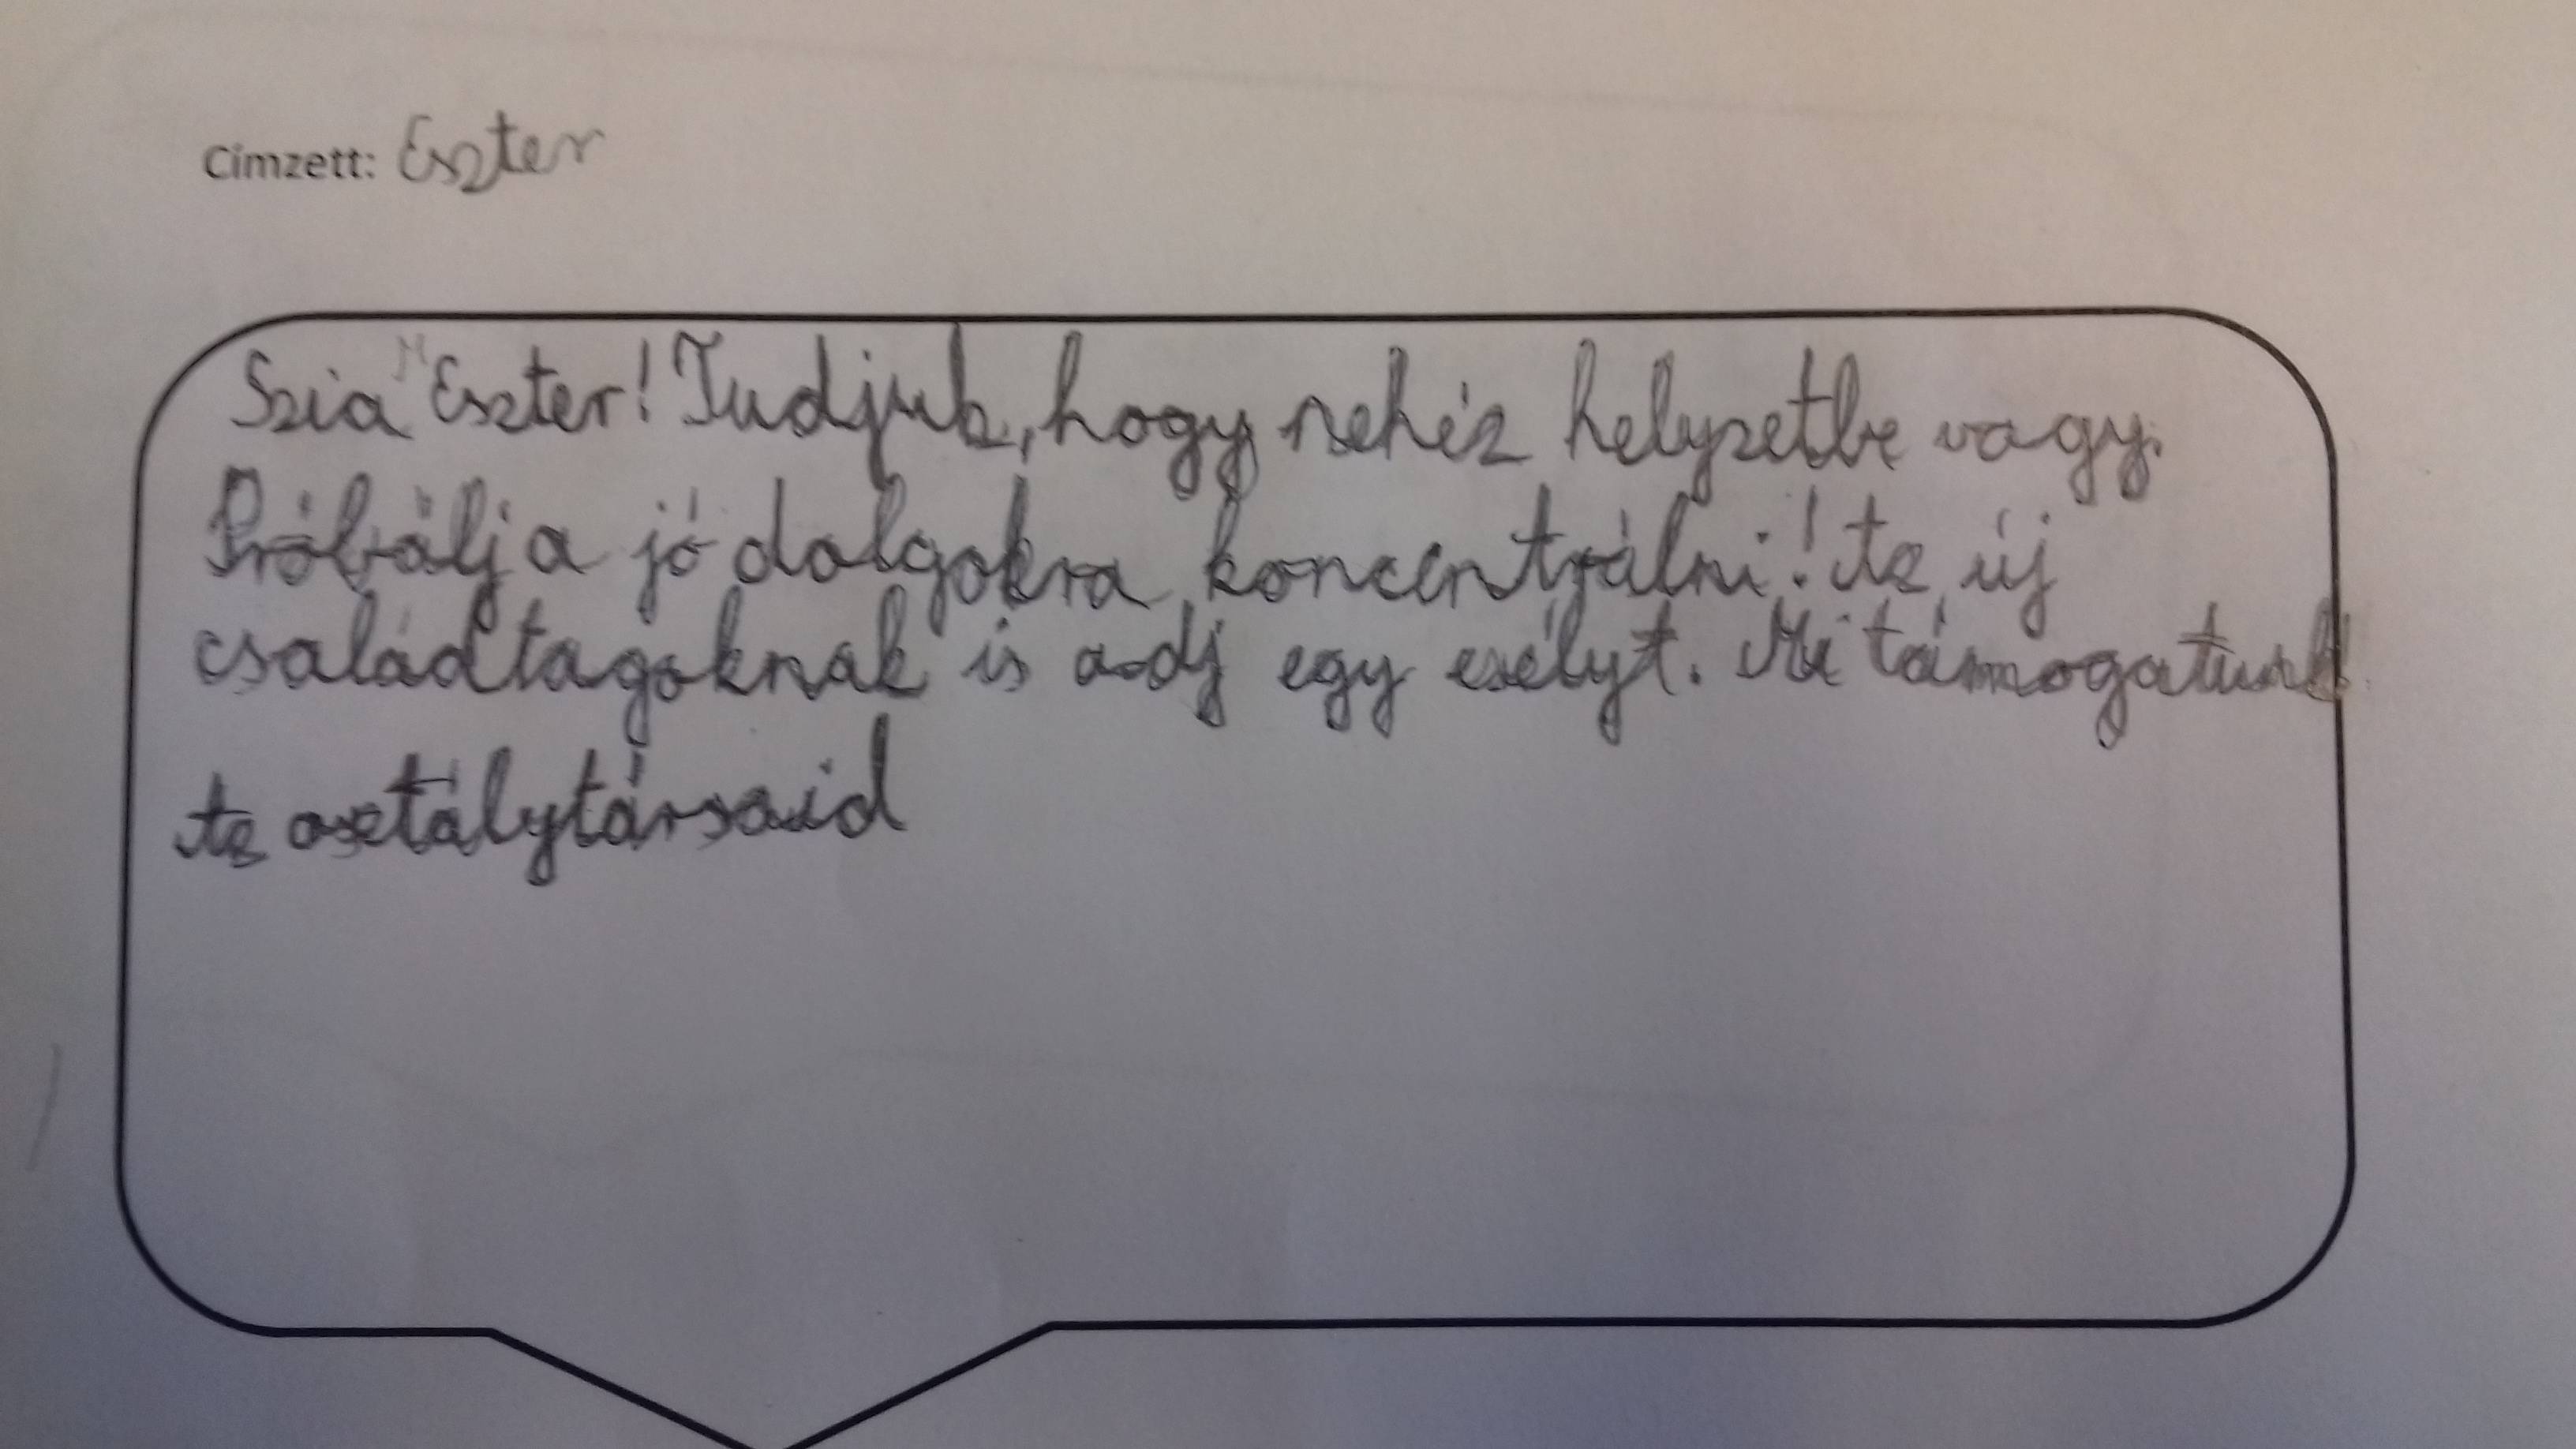 Címzett: Eszter
Szia Eszter! Tudjuk, hogy nehéz helyzetbe vagy.
Próbálj a jó dolgokra koncentrálni! Az új
családtagoknak is adj egy esélyt. Mi támogatunk
Az osztálytársaid